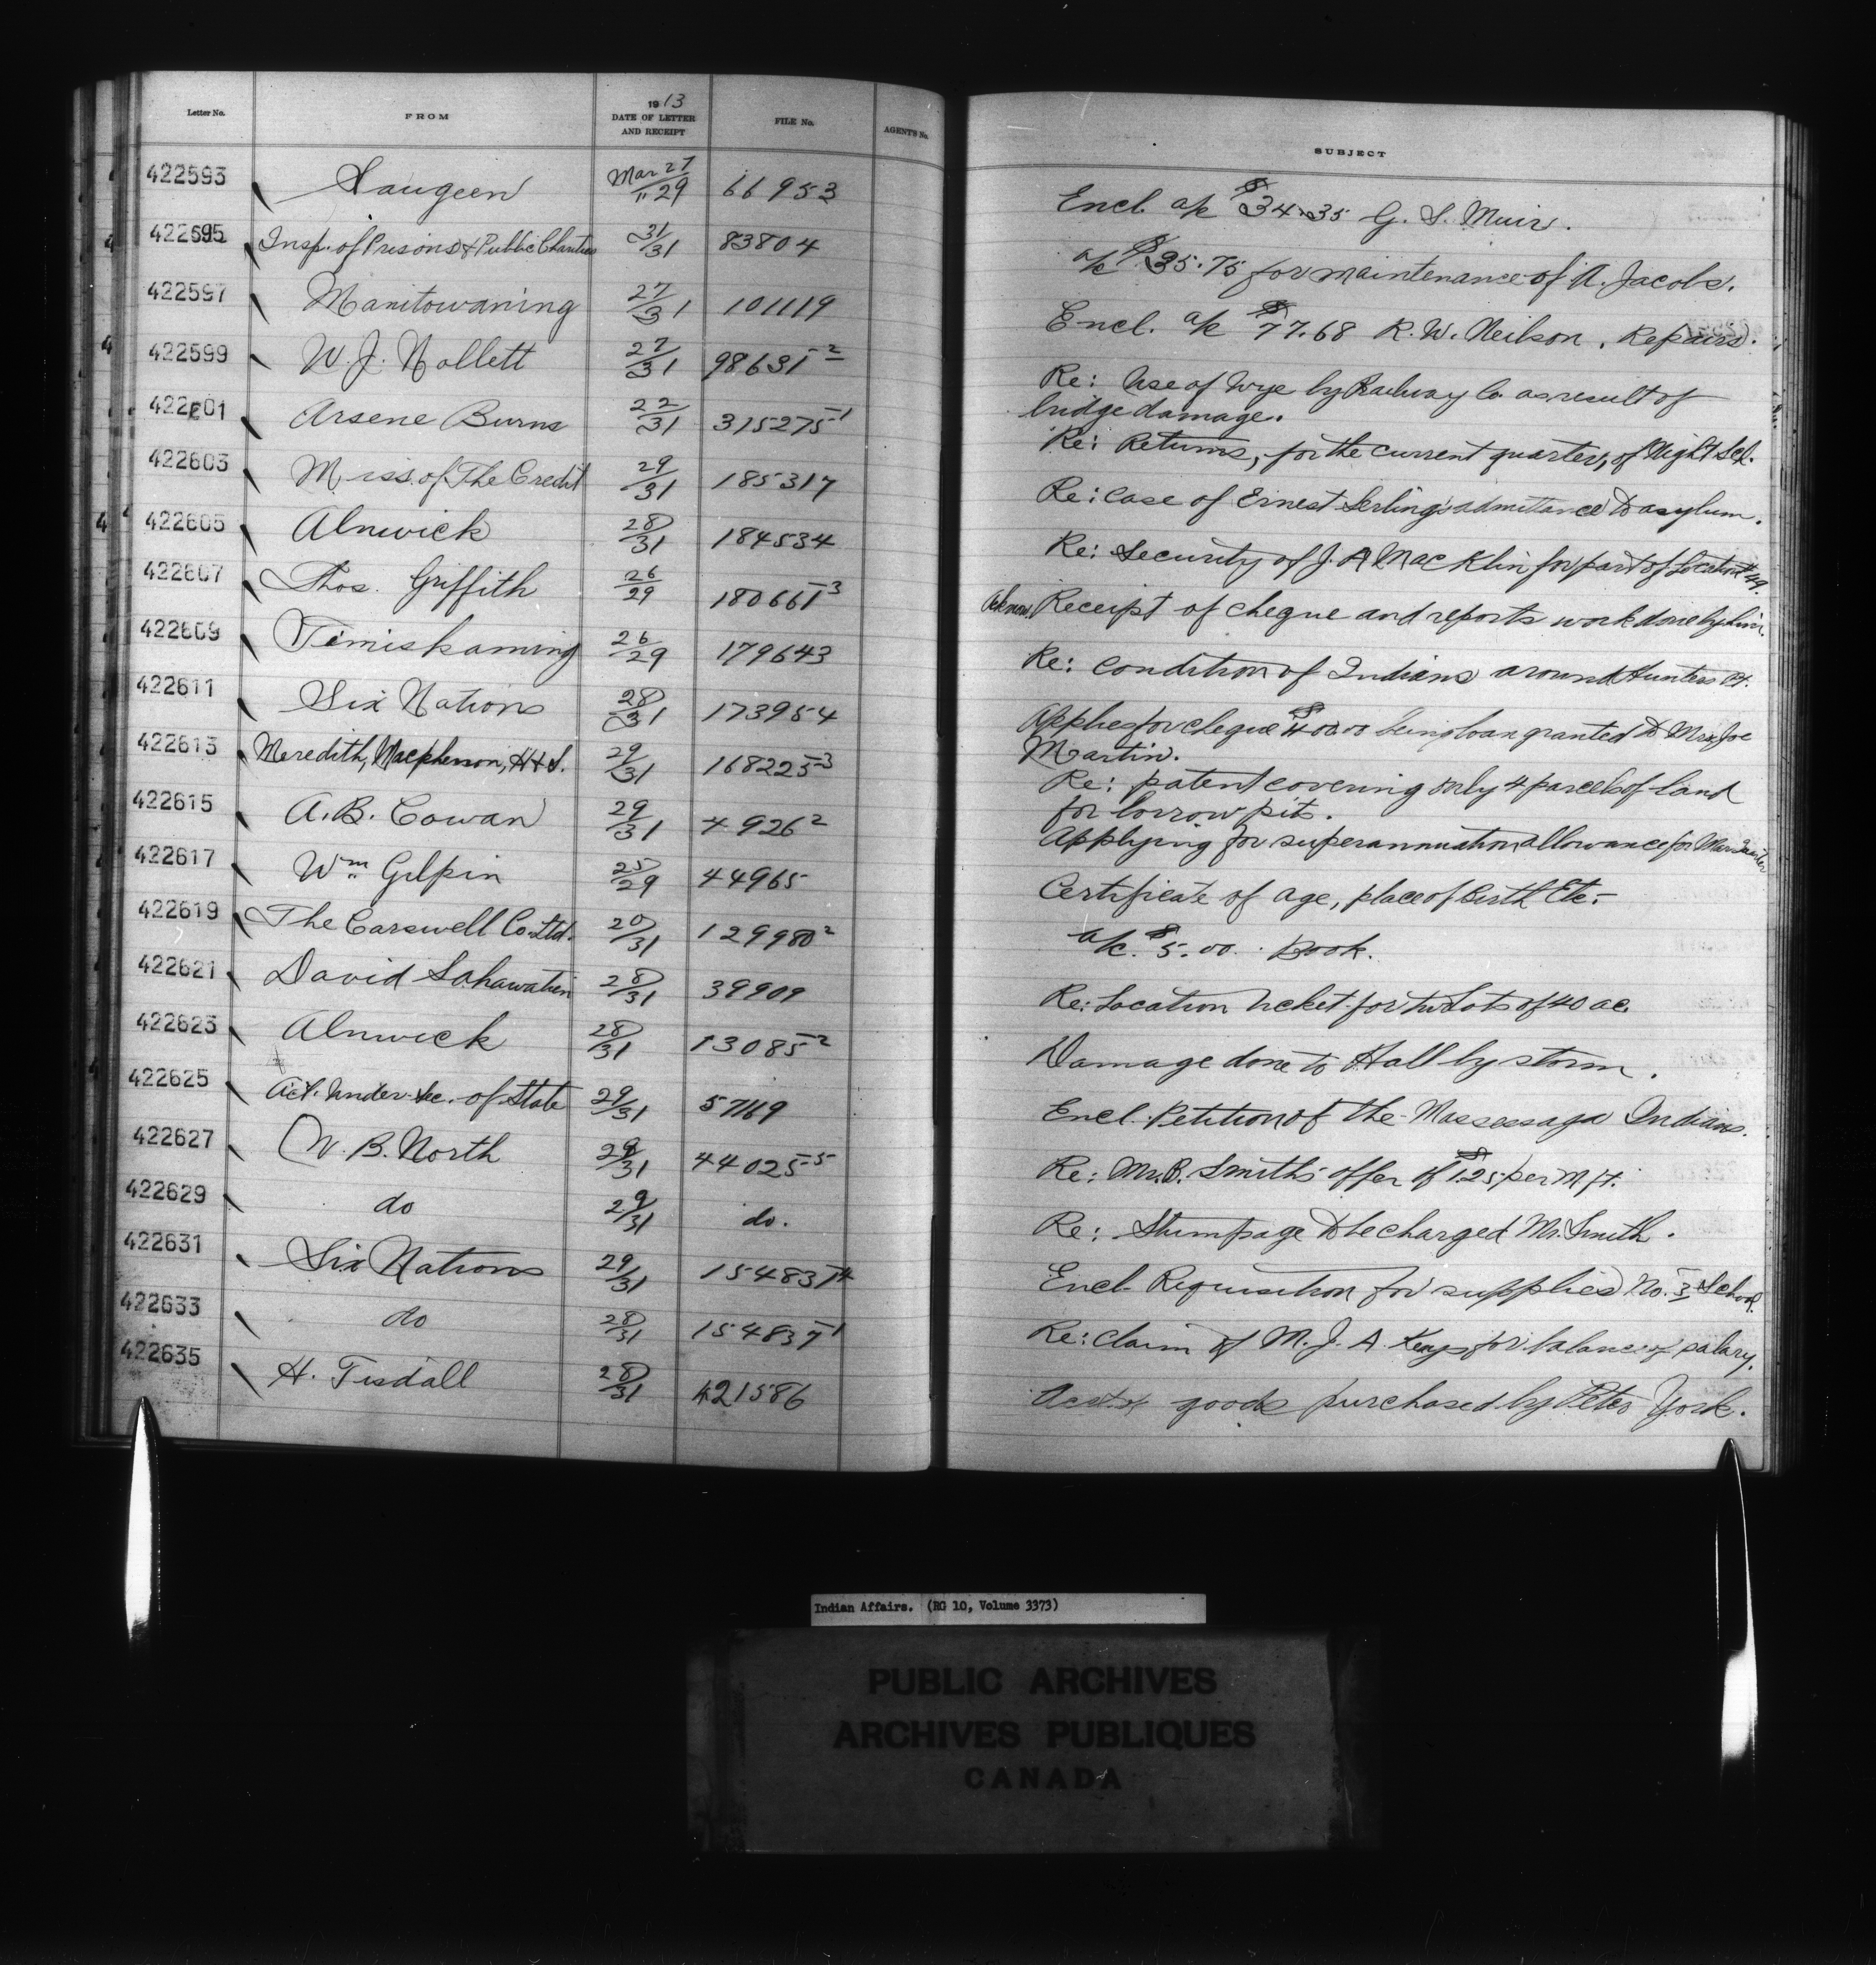 Letter No. FROM 1913 DATE OF LETTER AND RECEIPT FILE No. AGENT'S No. SUBJECT
422593 Saugeen Mar 27/" 29 66953 Encl. a/c $34.35 G. S. Muir.
422595 Insp. of Prisons & Public Charities 31/31 83804 a/c $35.75 for maintenance of A. Jacobs.
422597 Manitowaning 27/31 101119 Encl. a/c $77.68 R. W. Neilson. Repairs.
422599 W. J. Nollett 27/31 98631-2 Re: Use of Wye by Railway Co. as result of
bridge damage.
422601 Arsene Burns 22/31 315275-1 Re: Returns, for the current quarter, of Night Sch.
422603 Miss. of The Credit 29/31 185317 Re: Case of Ernest admitance to asylum.
422605 Alnwick 28/31 184534 Re: Security of J. A. MacKlin for part of Location 49.
422607 Thos. Griffith 26/29 180661-3 Receipt of cheque and reports work done by him.
422609 Timiskaming 26/29 179643 Re: Condition of Indians around Hunters Pt.
422611 Six Nations 28/31 173954 Applies for cheque $400.00 being loan granted to Mrs. Joe
Martin.
422613 Meredith, Macpherson, H & S. 29/31 168225-3 Re: patent covering only 4 parcels of land
for borrow pits.
422615 A. B. Cowan 29/31 4926-2 Applying for superannuation allowance for
422617 Wm Gilpin 25/29 44965 Certificate of age, place of Birth Etc.-
422619 The Carswell Co. Ltd. 20/31 129980-2 a/c. $5.00. Book.
422621 David 28/31 39909 Re: Location ticket for two Lots of 40 ac.
422623 Alnwick 28/31 13085-2 Damage done to Hall by storm.
422625 Act. Under Sec. of State 29/31 57169 Encl. Petition of the Massessaga Indians.
422627 W. B. North 29/31 44025-5 Re: Mr. B. Smith's offer of $1.25 per M. ft.
422629 do 29/31 do. Re: Stumpage to be charged Mr. Smith.
422631 Six Nations 29/31 15483-14 Encl. Requisition for supplies No. 3 School.
422633 do 28/31 154837-1 Re: Claim of M. J. A. Keays for balance of salary.
422635 H. Tisdall 28/31 421586 goods purchased by Peter York.
Indian Affairs. (RG 10, Volume 3373)
PUBLIC ARCHIVES
ARCHIVES PUBLIQUES
CANADA